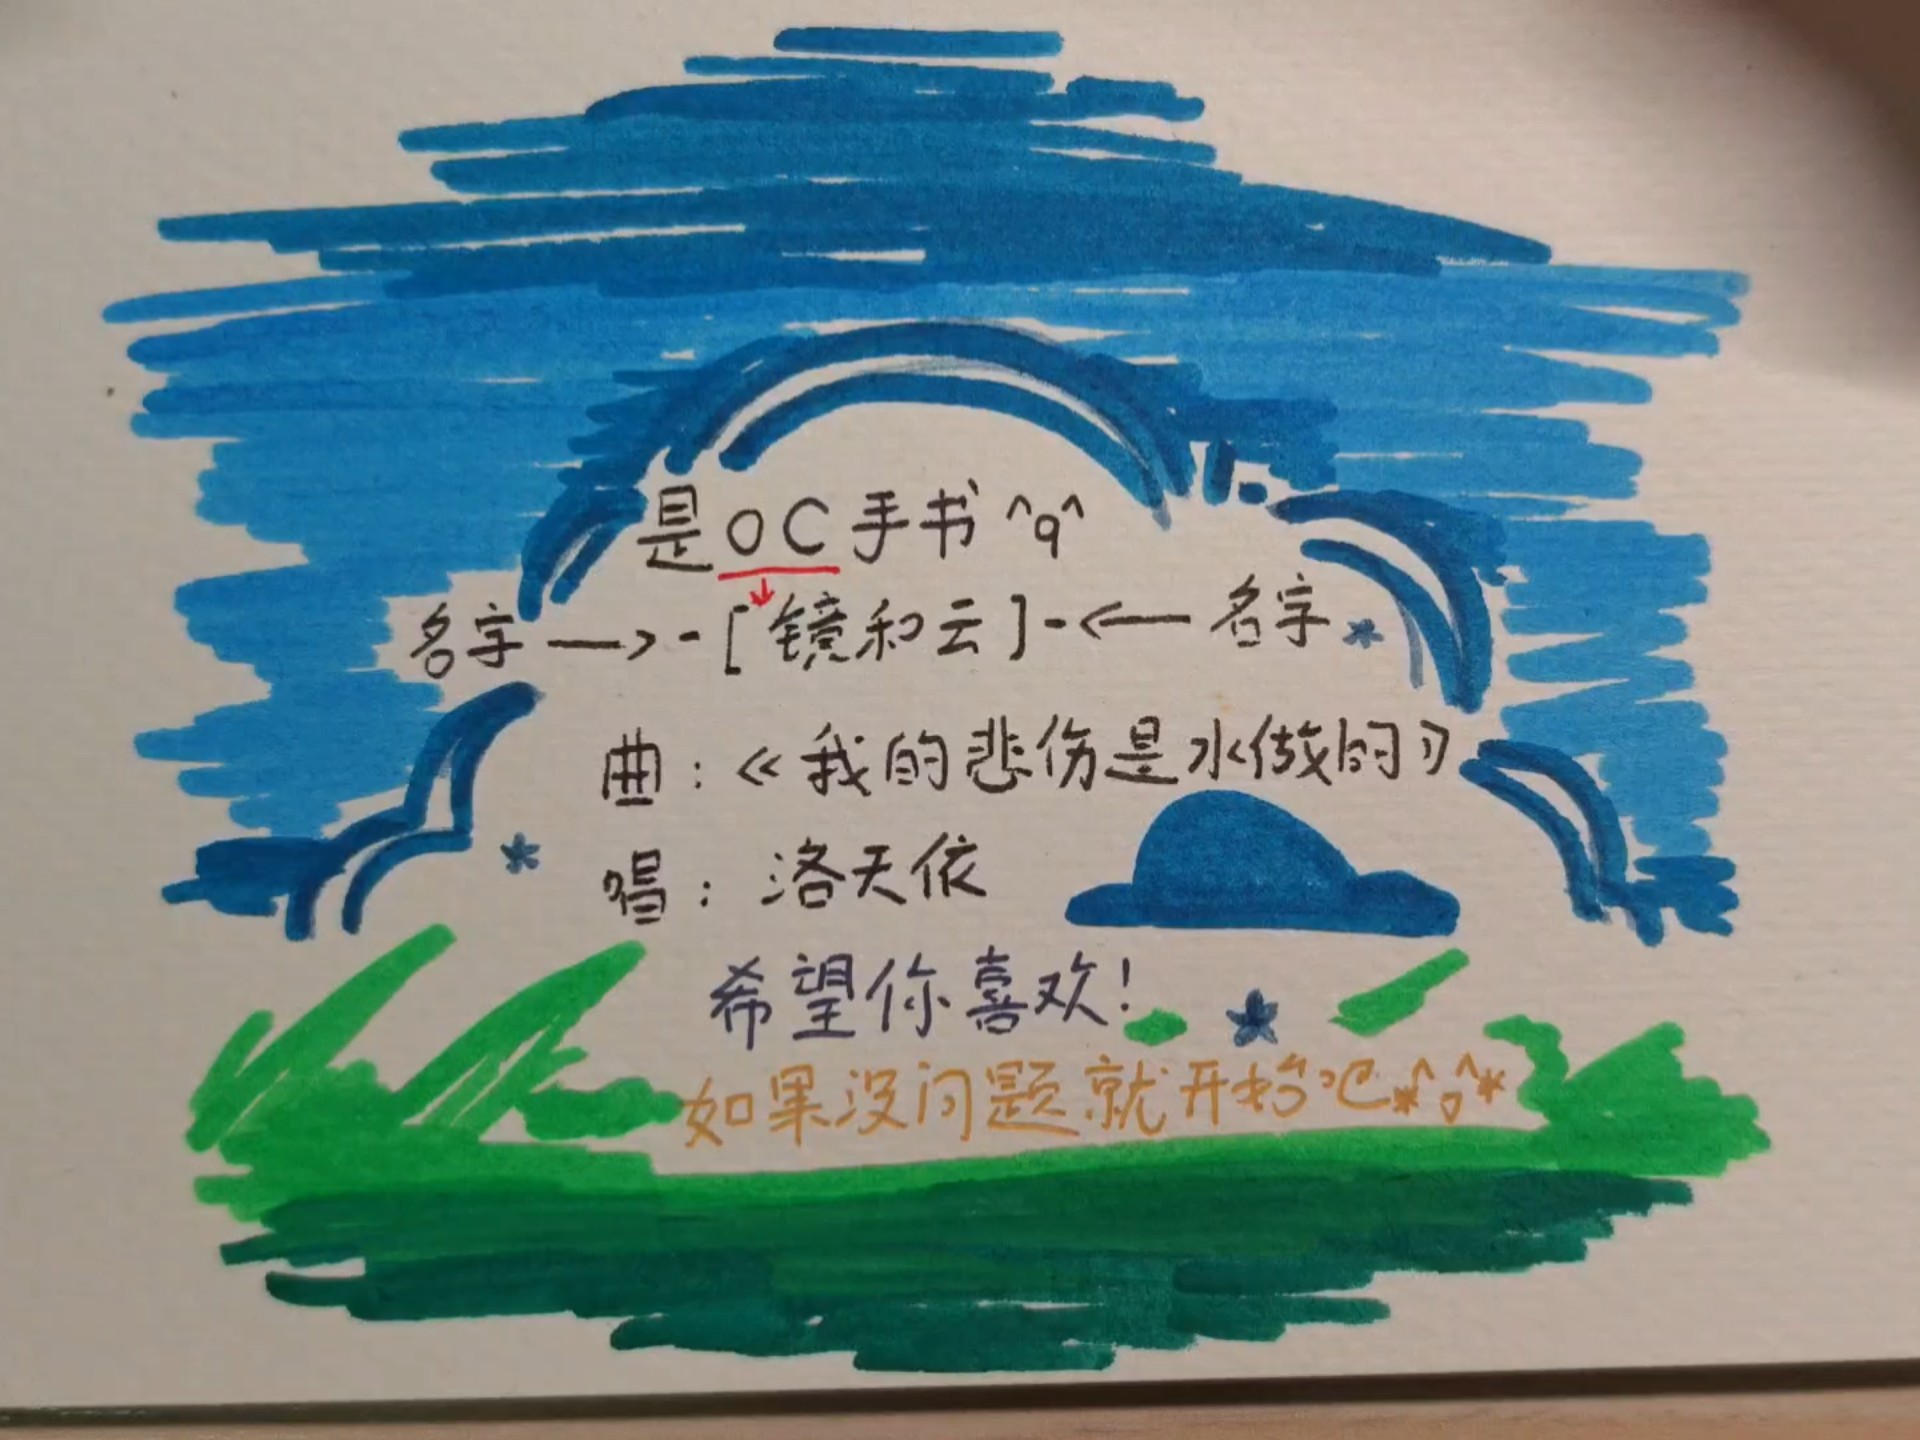 是OC手书^q^
名字—>-[镜和云]-<—名字
曲：《我的悲伤是水做的》
唱：洛天依
希望你喜欢！
如果没问题就开始吧*^o^*